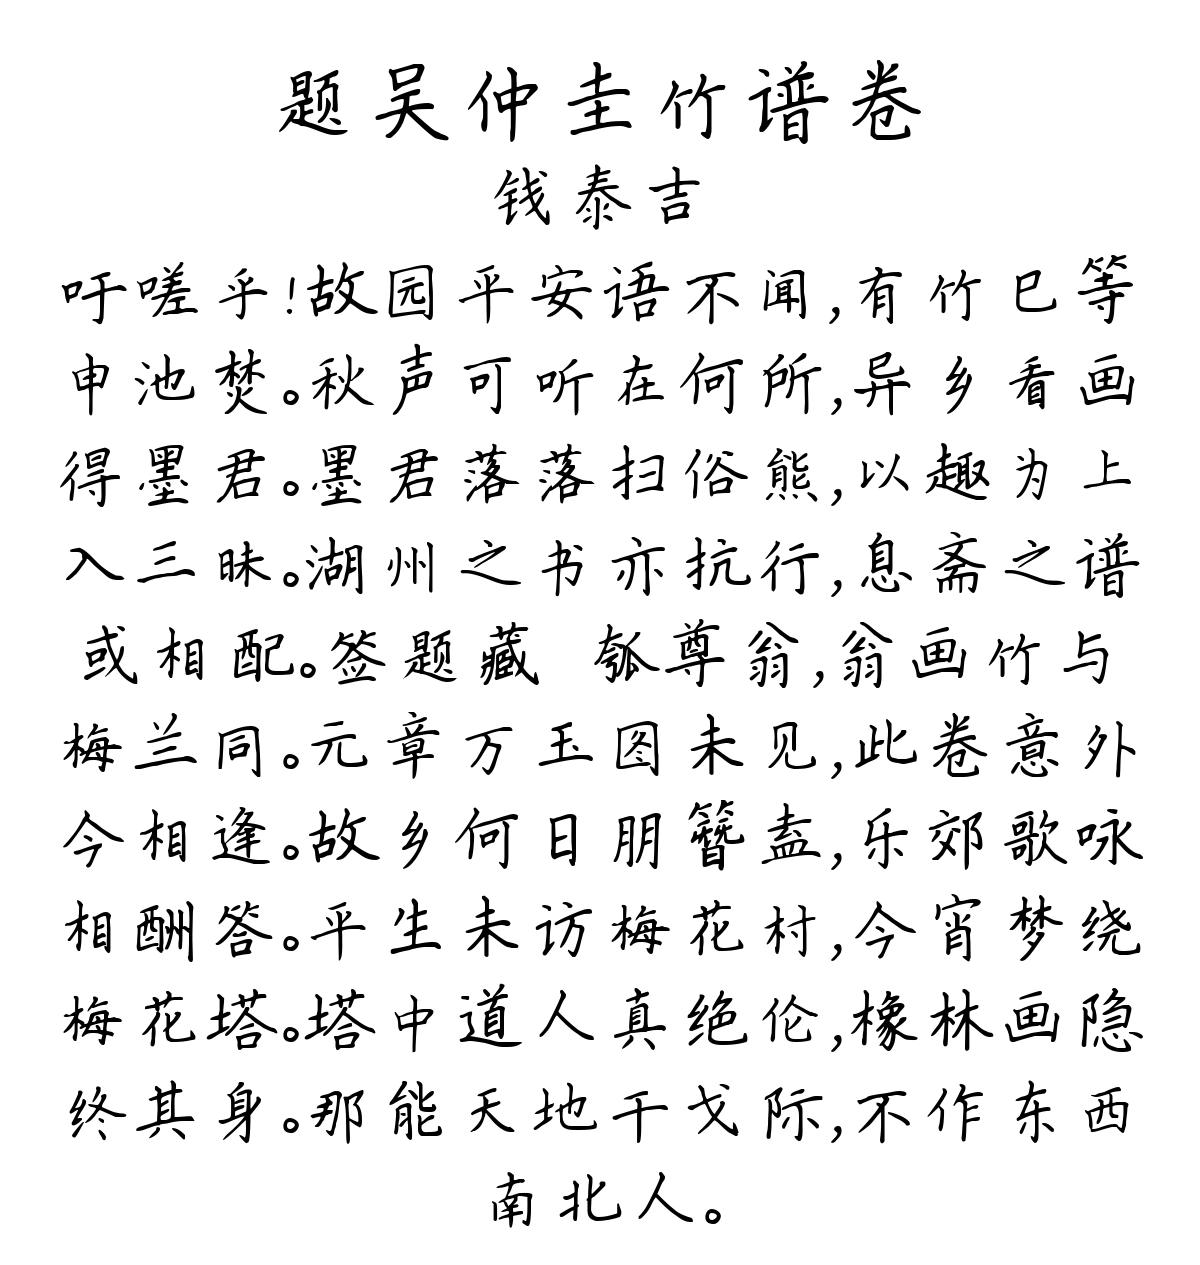 题吴仲圭竹谱卷
钱泰吉
吁嗟乎!故园平安语不闻,有竹巳等
申池焚。秋声可听在何所,异乡看画
得墨君。墨君落落扫俗熊,以趣为上
入三昧。湖州之书亦抗行,息斋之谱
或相配。签题藏 瓠尊翁,翁画竹与
梅兰同。元章万玉图未见,此卷意外
今相逢。故乡何日朋簪盍,乐郊歌咏
相酬答。平生未访梅花村,今宵梦绕
梅花塔。塔中道人真绝伦,橡林画隐
终其身。那能天地干戈际,不作东西
南北人。